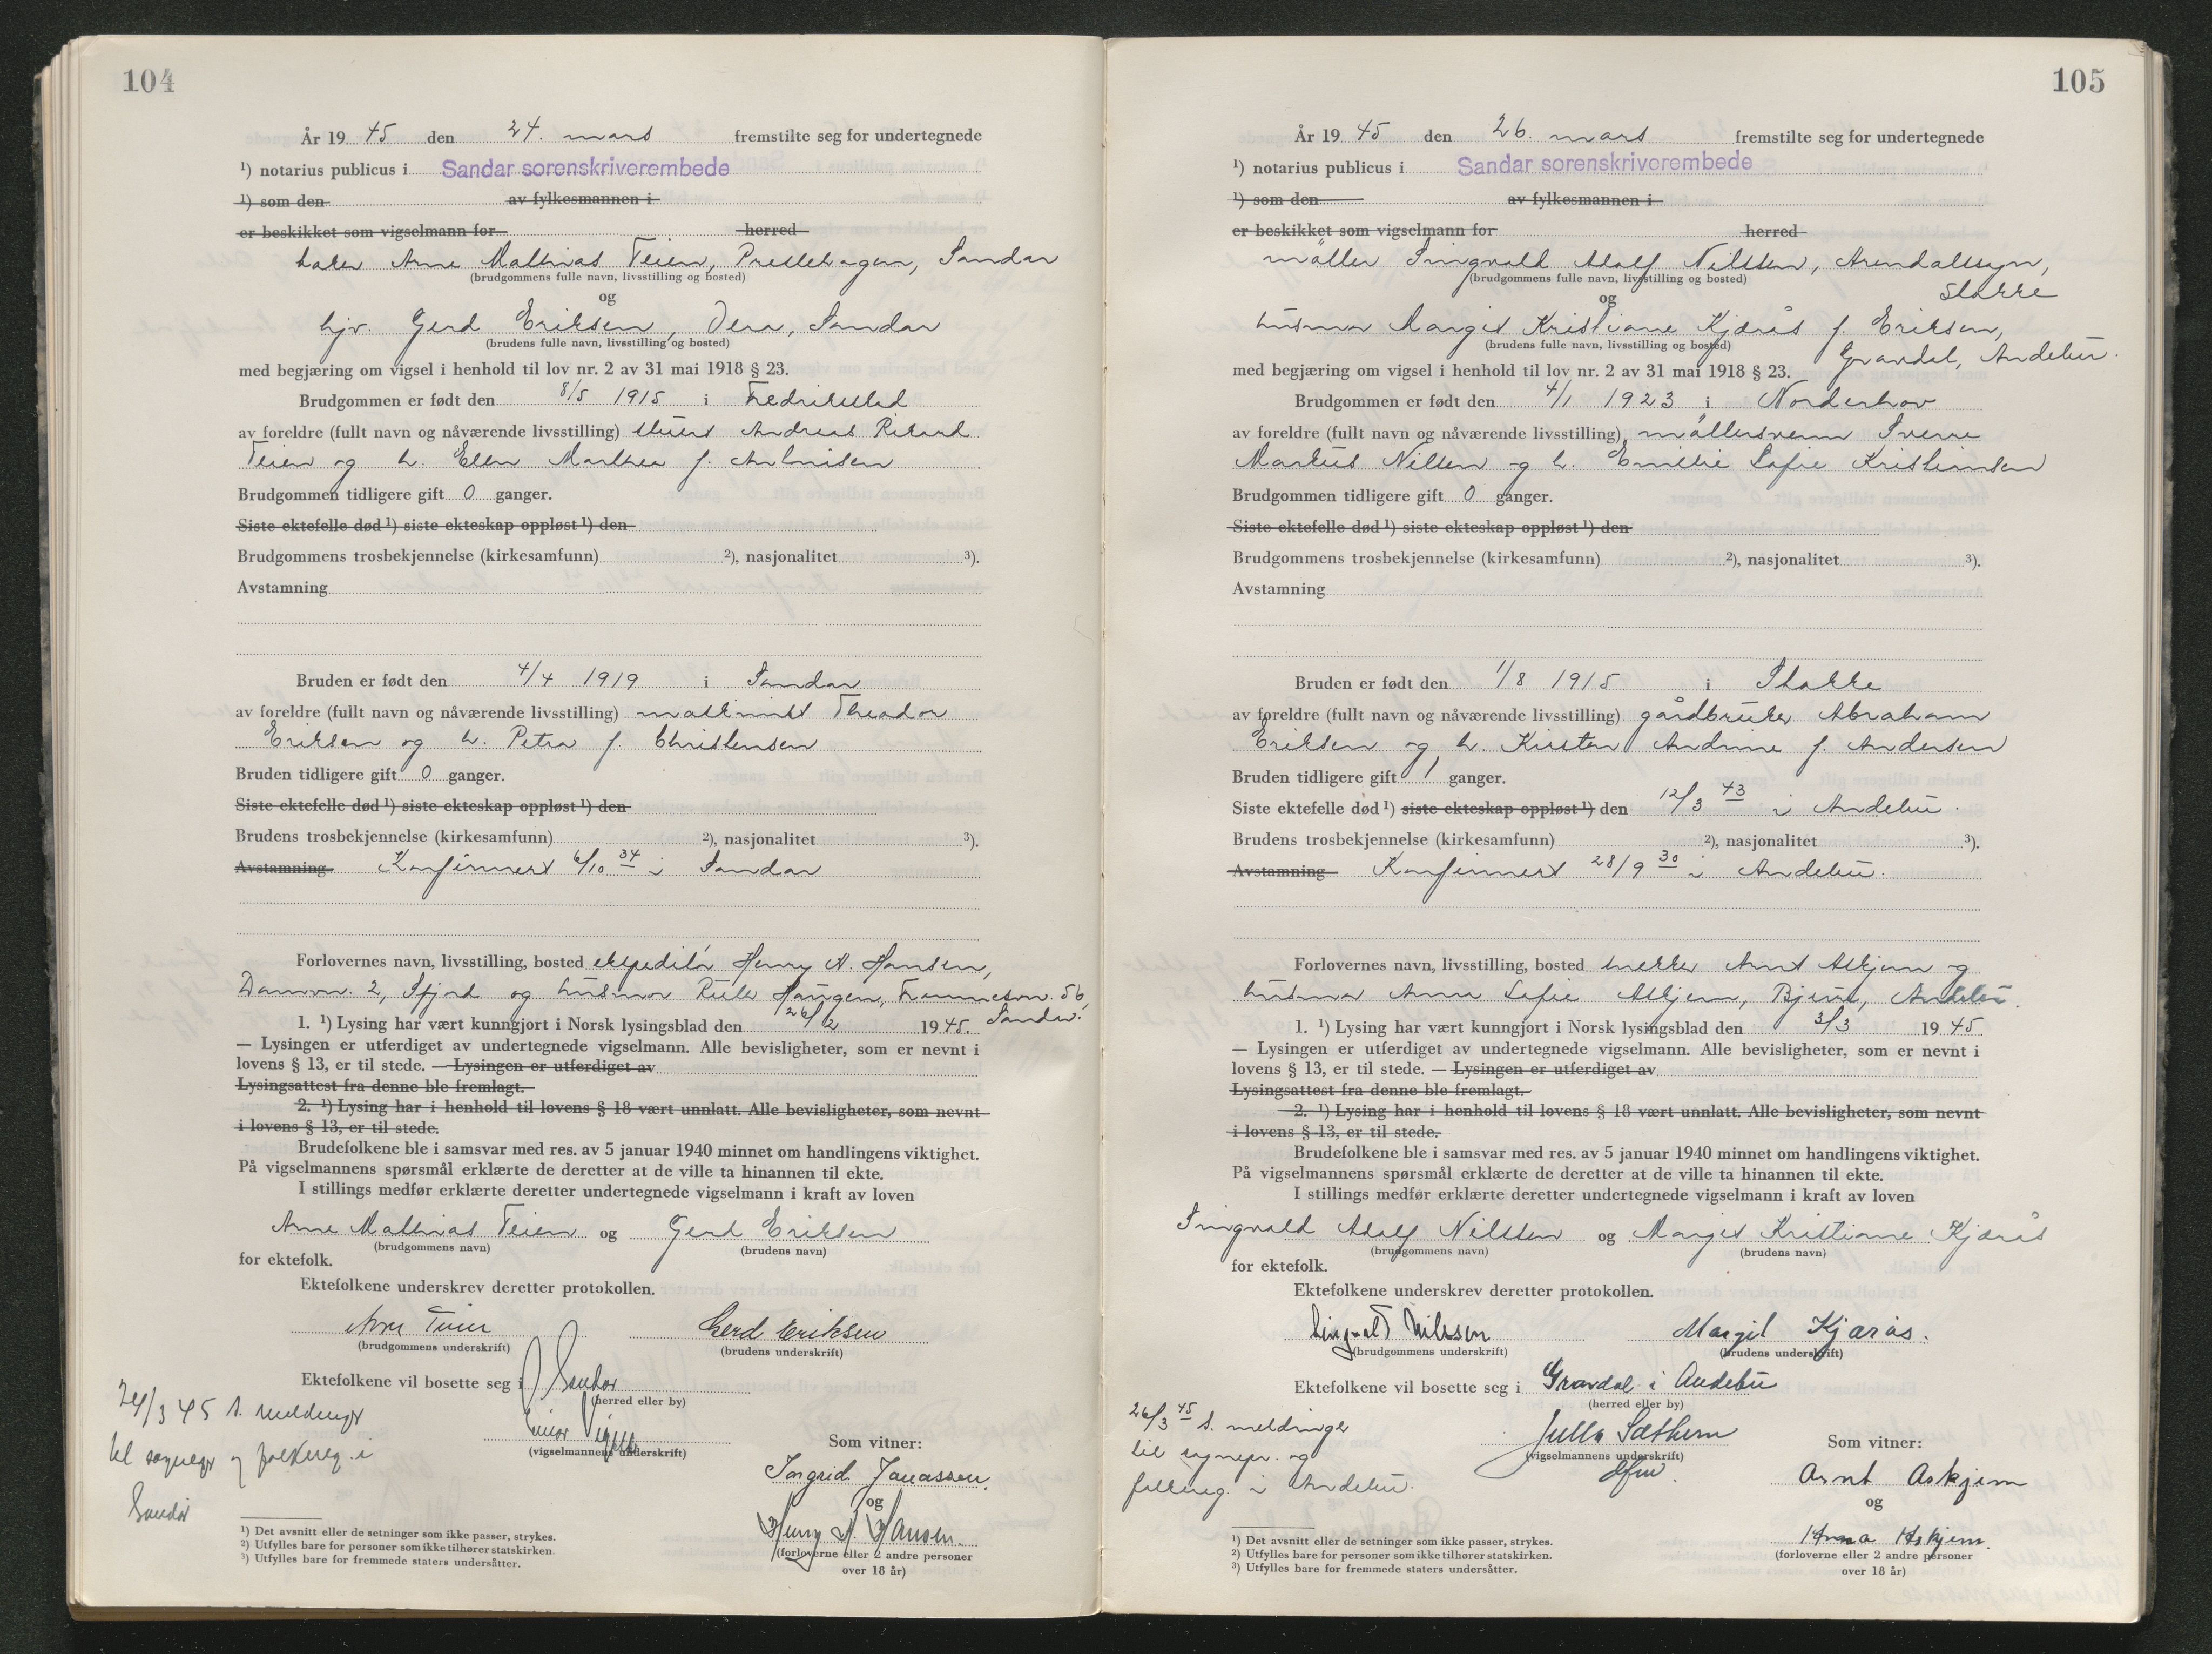 104
År 19 45 den 24. mars fremstilte seg for undertegnede
¹) notarius publicus i Sandar sorenskriverembede
¹) som den av fylkesmannen i
er beskikket som vigselmann for herred
baker Arne Mathias Teien, Preståsen, Sandar
(brudgommens fulle navn, livsstilling og bosted)
og
hjv. Gerd Eriksen, Vera, Sandar
(brudens fulle navn, livsstilling og bosted)
med begjæring om vigsel i henhold til lov nr. 2 av 31 mai 1918 § 23.
Brudgommen er født den 8/5 1915 i Fredrikstad
av foreldre (fullt navn og nåværende livsstilling) Andreas Rikard
Teien og h. Ellen Marthea f. Antonisen
Brudgommen tidligere gift 0 ganger.
Siste ektefelle død ¹) siste ekteskap oppløst ¹) den
Brudgommens trosbekjennelse (kirkesamfunn) ²), nasjonalitet ³).
Avstamning
Bruden er født den 4/4 1919 i Sandar
av foreldre (fullt navn og nåværende livsstilling) maskinist Theodor
Eriksen og h. Petra f. Christensen
Bruden tidligere gift 0 ganger.
Siste ektefelle død ¹) siste ekteskap oppløst ¹) den
Brudens trosbekjennelse (kirkesamfunn) ²), nasjonalitet ³).
Avstamning Konfirmert 6/10 34 i Sandar
Forlovernes navn, livsstilling, bosted ekspeditør Henry A. Hansen,
2, Sfjord og husmor Haugen, Framnesvn. 56, Sandar.
1. ¹) Lysing har vært kunngjort i Norsk lysingsblad den 26/2 1945.
— Lysingen er utferdiget av undertegnede vigselmann. Alle bevisligheter, som er nevnt i
lovens § 13, er til stede. — Lysingen er utferdiget av
Lysingsattest fra denne ble fremlagt.
2. ¹) Lysing har i henhold til lovens § 18 vært unnlatt. Alle bevisligheter, som nevnt
i lovens § 13, er til stede.
Brudefolkene ble i samsvar med res. av 5 januar 1940 minnet om handlingens viktighet.
På vigselmannens spørsmål erklærte de deretter at de ville ta hinannen til ekte.
I stillings medfør erklærte deretter undertegnede vigselmann i kraft av loven
Arne Mathias Teien og Gerd Eriksen
(brudgommens navn) (brudens navn)
for ektefolk.
Ektefolkene underskrev deretter protokollen.
Arne Teien Gerd Eriksen
(brudgommens underskrift) (brudens underskrift)
Ektefolkene vil bosette seg i Sandar
(herred eller by)
24/3 45 s. meldinger
til sognepr og folkereg. i
Sandar
(vigselmannens underskrift)
Som vitner:
Ingrid Jonassen.
og
Henry A. Hansen.
(forloverne eller 2 andre personer
over 18 år)
¹) Det avsnitt eller de setninger som ikke passer, strykes.
²) Utfylles bare for personer som ikke tilhører statskirken.
³) Utfylles bare for fremmede staters undersåtter.
105
År 19 45 den 26. mars fremstilte seg for undertegnede
¹) notarius publicus i Sandar sorenskriverembede
¹) som den av fylkesmannen i
er beskikket som vigselmann for herred
møller Singvald Adolf Nilssen, Arendalsogn,
Stokke
(brudgommens fulle navn, livsstilling og bosted)
og
husmor Margit Kristiane Kjærås f. Eriksen,
Gravdal, Andebu.
(brudens fulle navn, livsstilling og bosted)
med begjæring om vigsel i henhold til lov nr. 2 av 31 mai 1918 § 23.
Brudgommen er født den 4/1 1923 i Norderhov
av foreldre (fullt navn og nåværende livsstilling) møllersvenn Sverre
Markus Nilssen og h. Emilie Sofie Kristiansen
Brudgommen tidligere gift 0 ganger.
Siste ektefelle død ¹) siste ekteskap oppløst ¹) den
Brudgommens trosbekjennelse (kirkesamfunn) ²), nasjonalitet ³).
Avstamning
Bruden er født den 1/8 1915 i Stokke
av foreldre (fullt navn og nåværende livsstilling) gårdbruker Abraham
Eriksen og h. Kirsten Andrine f. Andersen
Bruden tidligere gift 1 ganger.
Siste ektefelle død ¹) siste ekteskap oppløst ¹) den 12/3 43 i Andebu.
Brudens trosbekjennelse (kirkesamfunn) ²), nasjonalitet ³).
Avstamning Konfirmert 28/9 30 i Andebu.
Forlovernes navn, livsstilling, bosted snekker Arnt Askjem og
husmor Anna Sofie Askjem, Bjerke, Andebu.
1. ¹) Lysing har vært kunngjort i Norsk lysingsblad den 3/3 1945
— Lysingen er utferdiget av undertegnede vigselmann. Alle bevisligheter, som er nevnt i
lovens § 13, er til stede. — Lysingen er utferdiget av
Lysingsattest fra denne ble fremlagt.
2. ¹) Lysing har i henhold til lovens § 18 vært unnlatt. Alle bevisligheter, som nevnt
i lovens § 13, er til stede.
Brudefolkene ble i samsvar med res. av 5 januar 1940 minnet om handlingens viktighet.
På vigselmannens spørsmål erklærte de deretter at de ville ta hinannen til ekte.
I stillings medfør erklærte deretter undertegnede vigselmann i kraft av loven
Singvald Adolf Nilssen og Margit Kristiane Kjærås
(brudgommens navn) (brudens navn)
for ektefolk.
Ektefolkene underskrev deretter protokollen.
Singvald Nilssen Margit Kjærås.
(brudgommens underskrift) (brudens underskrift)
Ektefolkene vil bosette seg i Gravdal i Andebu
(herred eller by)
26/3 45 s. meldinger
til sognepr. og
folkereg. i Andebu.
Julla Sæthern
(vigselmannens underskrift)
Som vitner:
Arnt Askjem
og
Anna Askjem.
(forloverne eller 2 andre personer
over 18 år)
¹) Det avsnitt eller de setninger som ikke passer, strykes.
²) Utfylles bare for personer som ikke tilhører statskirken.
³) Utfylles bare for fremmede staters undersåtter.